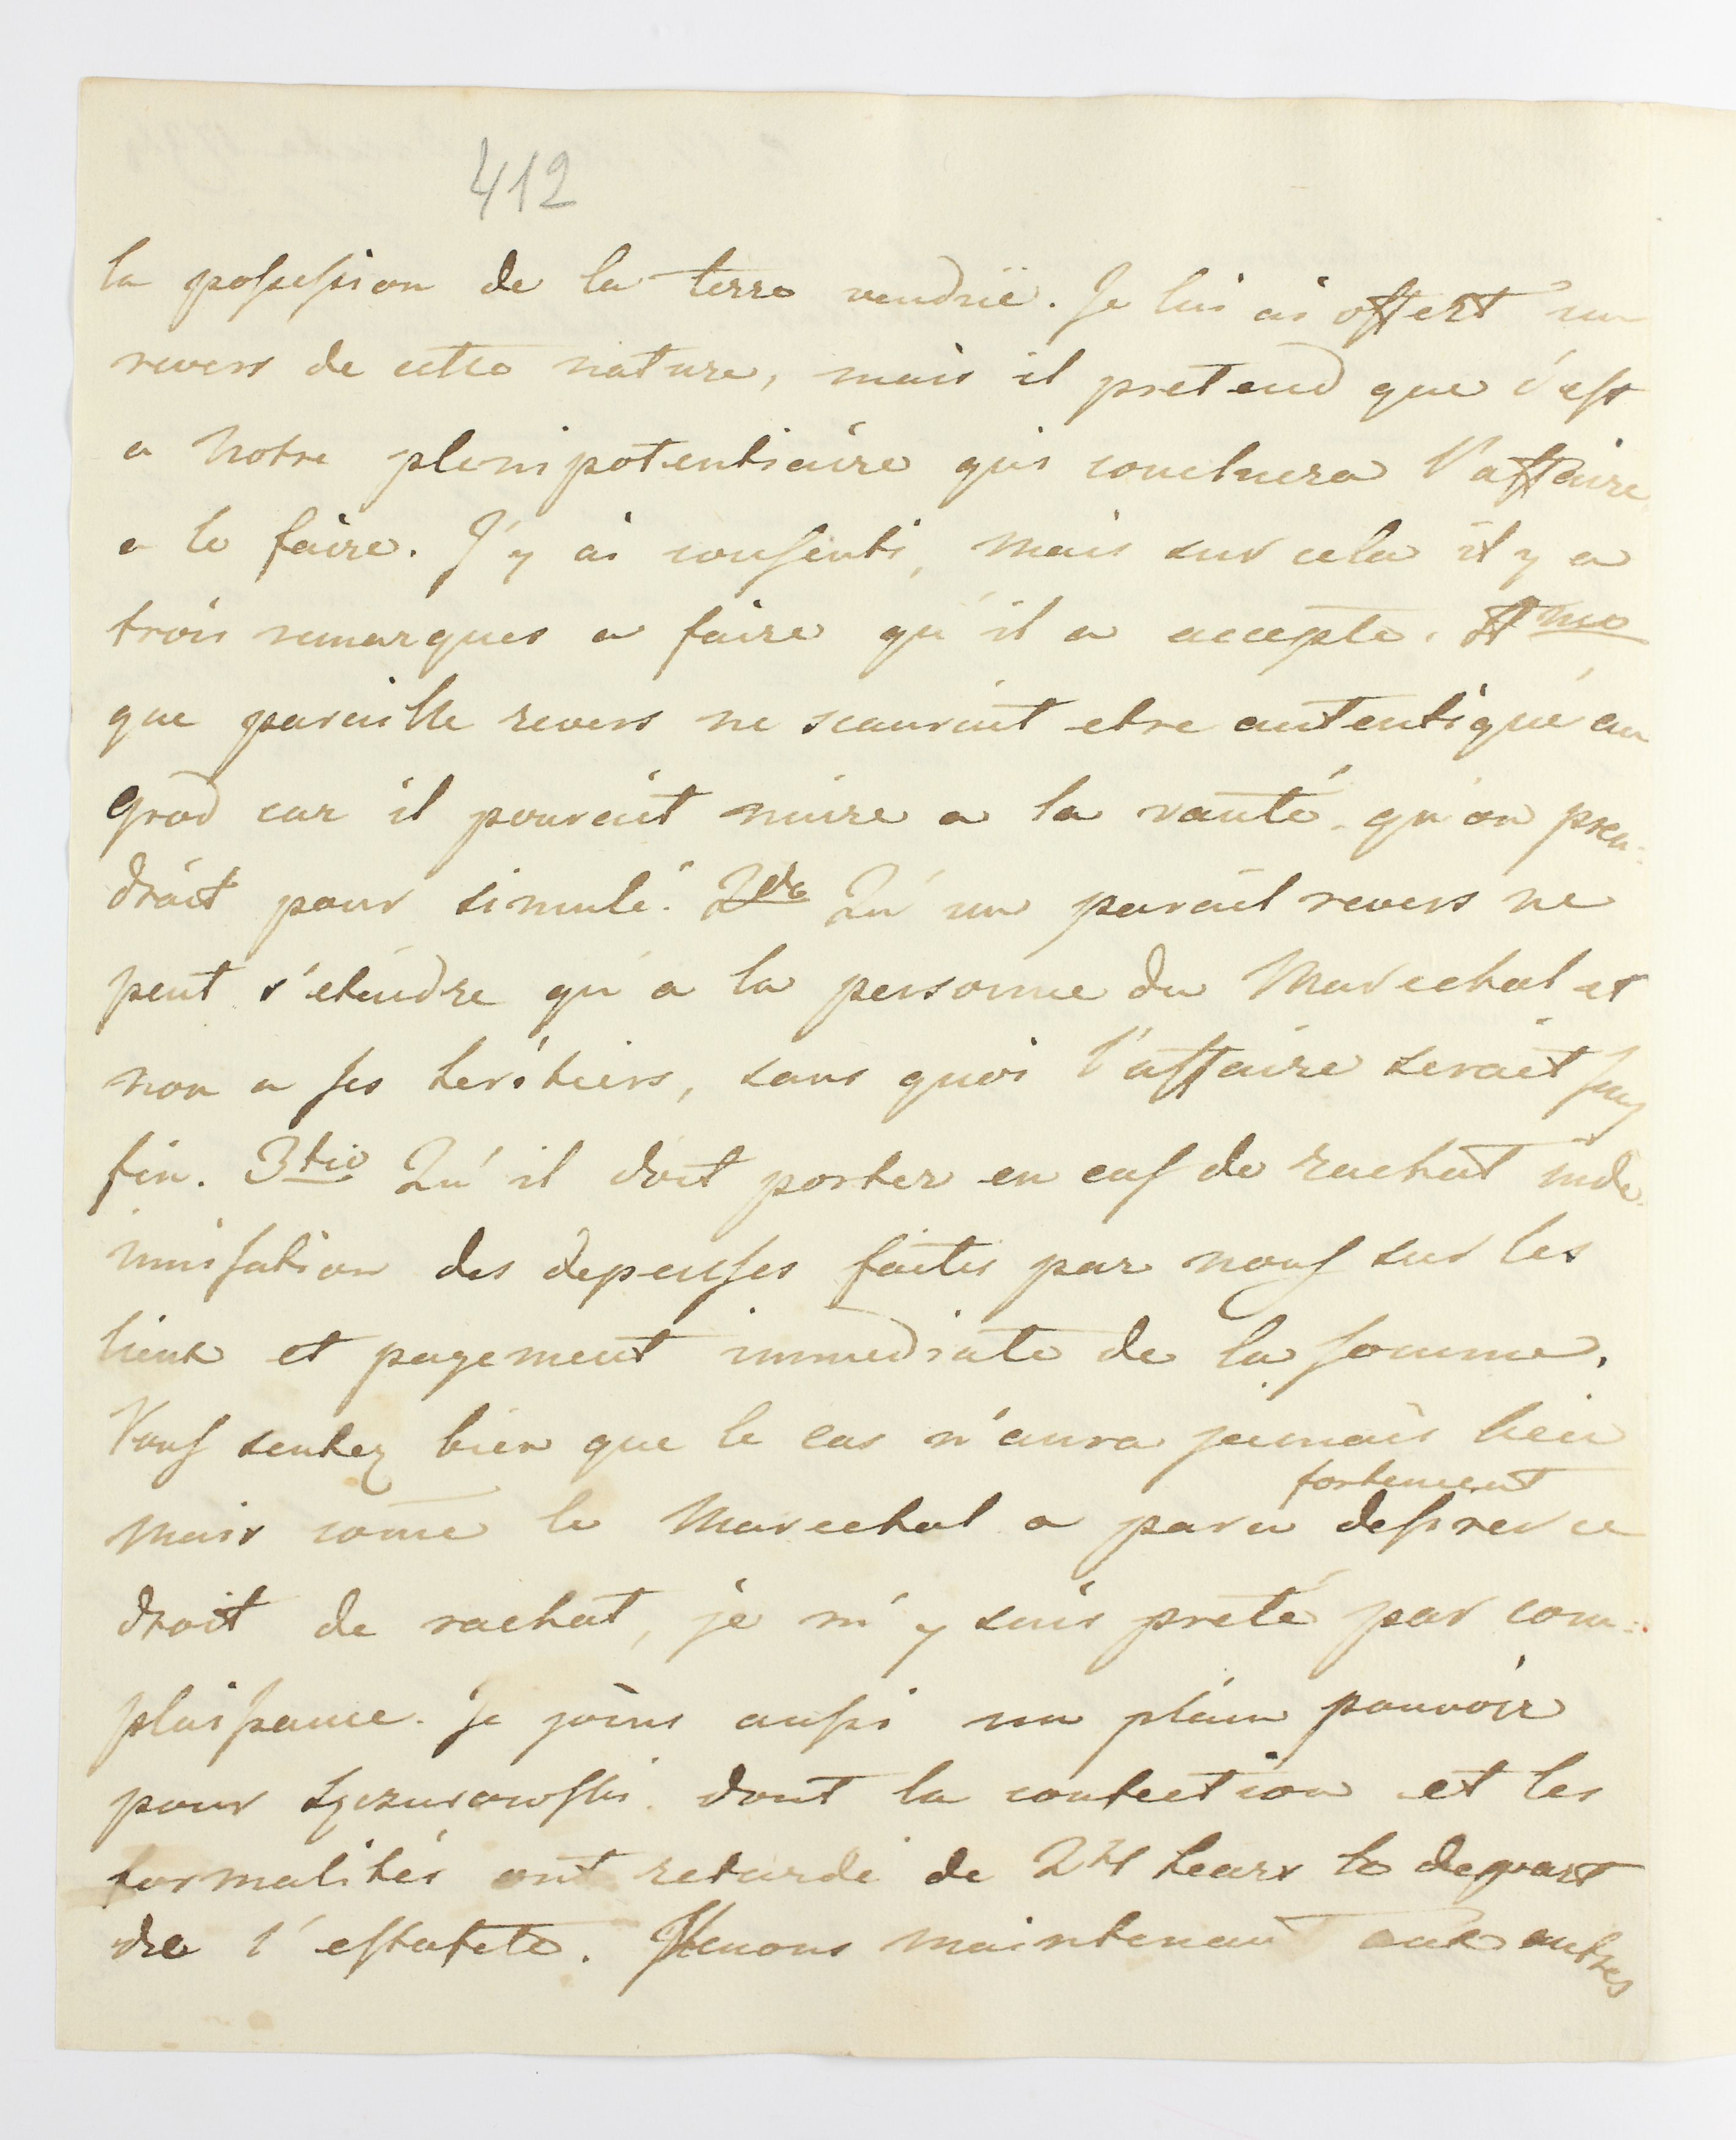 412
la possession de la terre vendüe. Je lui ai offert un
revers de cette nature, mais il pretend que c'est
a notre plenipotentiaire qui concluera l'affaire
a le faire. J'y ai consenti, mais sur cela il y a
trois remarques a faire qu'il a accepte. 1mo
que pareille revers ne scaurait etre autentiqué au
grod car il pourait nuire a la vante qu'on pren:
drait pour simulé. 2do Qu'un pareil revers ne
peut s'etendre qu'a la personne du Marechal et
non a ses heritiers, sans quoi l'affaire serait sans
fin. 3tio Qu'il doit porter en cas de rachat inde:
mnisation des depenses faites par nous sur les
lieux et payement immediate de la somme.
Vous sentez bien que le cas n'aura jamais lieu
fortement
mais come le Marechal a paru desirer ce
droit de rachat, je m'y suis preté par com:
plaisance. Je joins aussi un plein pouvoir
pour Szczurowski dont la confection et les
formalités ont retardé de 24 heurs le depart
de l'estafete. Venons maintenant aux autres